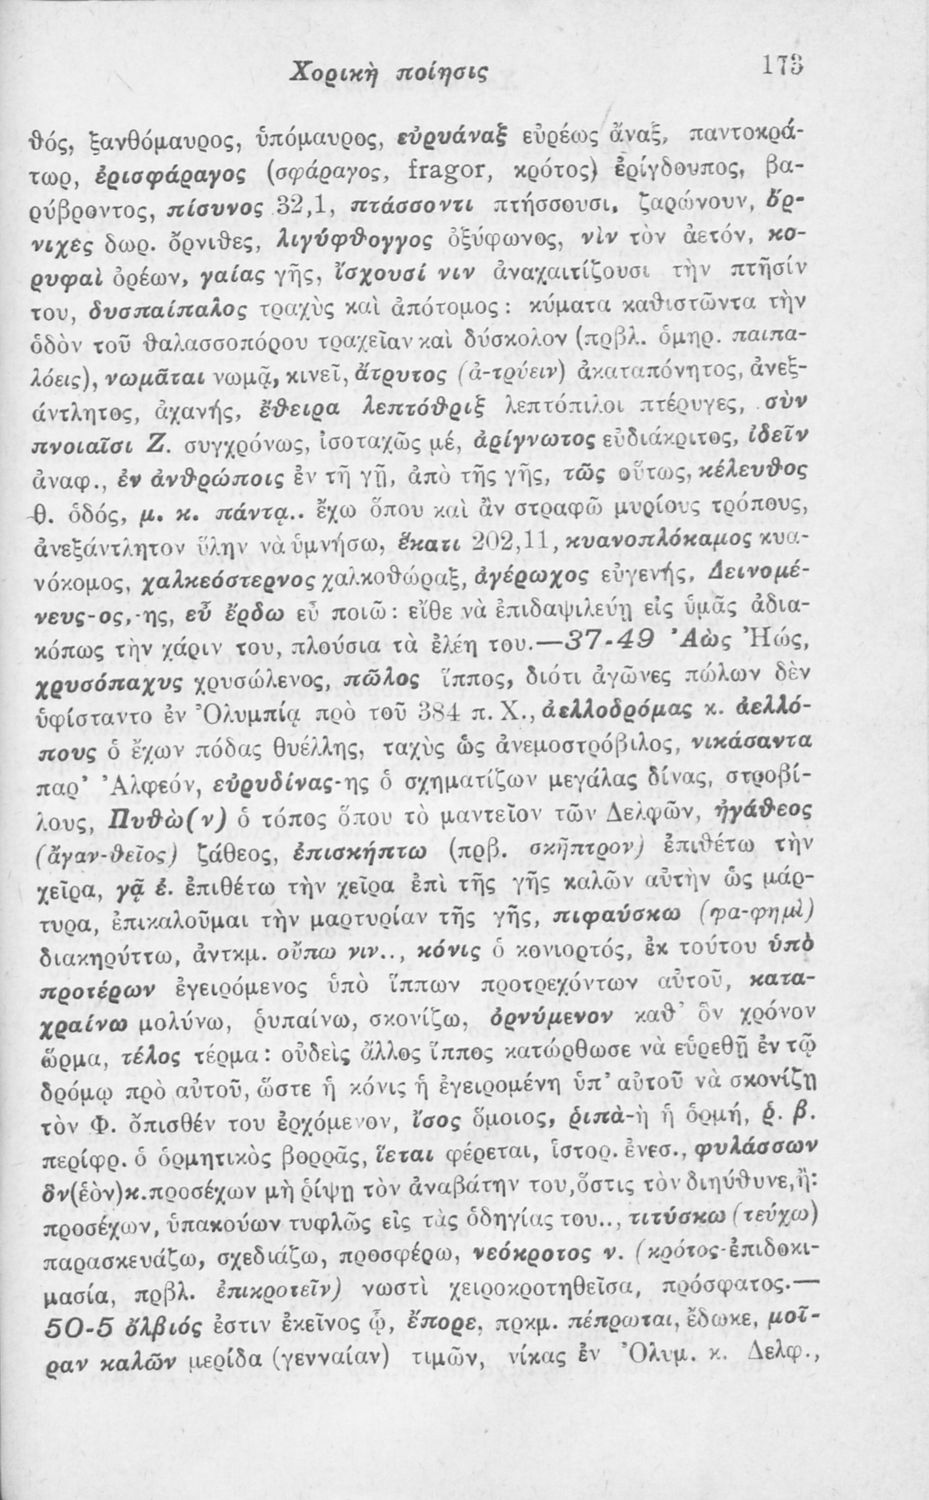 Χορικὴ ποίησις 173
θός, ξανθόμαυρος, ὑπόμαυρος, εὐρυάναξ εὐρέως ἄναξ, παντοκρά-
τωρ, ἐρισφάραγος (σφάραγος, fragor, κρότος) ἐρίγδουπος, βα-
ρύβροντος, πίσυνος 32,1, πτάσσοντι πτήσσουσι, ζαρώνουν, ὄρ-
νιχες δωρ. ὄρνιθες, λιγύφθογγος ὀξύφωνος, νὶν τὸν ἀετόν, κο-
ρυφαὶ ὀρέων, γαίας γῆς, ἴσχουσί νιν ἀναχαιτίζουσι τὴν πτῆσίν
του, δυσπαίπαλος τραχὺς καὶ ἀπότομος: κύματα καθιστῶντα τὴν
ὁδὸν τοῦ θαλασσοπόρου τραχεῖαν καὶ δύσκολον (πρβλ. ὁμηρ. παιπα-
λόεις), νωμᾶται νωμᾷ, κινεῖ, ἄτρυτος (ἀ-τρύειν) ἀκαταπόνητος, ἀνεξ-
άντλητος, ἀχανής, ἔθειρα λεπτόθριξ λεπτόπιλοι πτέρυγες, σὺν
πνοιαῖσι Ζ. συγχρόνως, ἰσοταχῶς μέ, ἀρίγνωτος εὐδιάκριτος, ἰδεῖν
ἀναφ., ἐν ἀνθρώποις ἐν τῇ γῇ, ἀπὸ τῆς γῆς, τῶς οὕτως, κέλευθος
-θ. ὁδός, μ. κ. πάντᾳ.. ἔχω ὅπου καὶ ἂν στραφῶ μυρίους τρόπους,
ἀνεξάντλητον ὕλην νὰ ὑμνήσω, ἕκατι 202,11, κυανοπλόκαμος κυα-
νόκομος, χαλκεόστερνος χαλκοθώραξ, ἀγέρωχος εὐγενής, Δεινομέ-
νευς-ος,-ης, εὖ ἔρδω εὖ ποιῶ: εἴθε νὰ ἐπιδαψιλεύῃ εἰς ὑμᾶς ἀδια-
κόπως τὴν χάριν του, πλούσια τὰ ἐλέη του.—37-49 Ἀὼς Ἠώς,
χρυσόπαχυς χρυσώλενος, πῶλος ἵππος, διότι ἀγῶνες πώλων δὲν
ὑφίσταντο ἐν Ὀλυμπίᾳ πρὸ τοῦ 384 π. Χ., ἀελλοδρόμας κ. ἀελλό-
πους ὁ ἔχων πόδας θυέλλης, ταχὺς ὡς ἀνεμοστρόβιλος, νικάσαντα
παρ' Ἀλφεόν, εὐρυδίνας-ης ὁ σχηματίζων μεγάλας δίνας, στροβί-
λους, Πυθὼ(ν) ὁ τόπος ὅπου τὸ μαντεῖον τῶν Δελφῶν, ἠγάθεος
(ἄγαν-θεῖος) ζάθεος, ἐπισκήπτω (πρβ. σκῆπτρον) ἐπιθέτω τὴν
χεῖρα, γᾷ ἐ. ἐπιθέτω τὴν χεῖρα ἐπὶ τῆς γῆς καλῶν αὐτὴν ὡς μάρ-
τυρα, ἐπικαλοῦμαι τὴν μαρτυρίαν τῆς γῆς, πιφαύσκω (φα-φημὶ)
διακηρύττω, ἀντκμ. οὔπω νιν.., κόνις ὁ κονιορτός, ἐκ τούτου ὑπὸ
προτέρων ἐγειρόμενος ὑπὸ ἵππων προτρεχόντων αὐτοῦ, κατα-
χραίνω μολύνω, ῥυπαίνω, σκονίζω, ὀρνύμενον καθ' ὃν χρόνον
ὥρμα, τέλος τέρμα: οὐδεὶς ἄλλος ἵππος κατώρθωσε νὰ εὑρεθῇ ἐν τῷ
δρόμῳ πρὸ αὐτοῦ, ὥστε ἡ κόνις ἡ ἐγειρομένη ὑπ' αὐτοῦ νὰ σκονίζῃ
τὸν Φ. ὄπισθέν του ἐρχόμενον, ἴσος ὅμοιος, ῥιπὰ-ὴ ἡ ὁρμή, ῥ. β.
περίφρ. ὁ ὁρμητικὸς βορρᾶς, ἵεται φέρεται, ἱστορ. ἐνεσ., φυλάσσων
ὃν(ἑὸν)κ. προσέχων μὴ ῥίψῃ τὸν ἀναβάτην του, ὅστις τὸν διηύθυνε, ἢ:
προσέχων, ὑπακούων τυφλῶς εἰς τὰς ὁδηγίας του.., τιτύσκω (τεύχω)
παρασκευάζω, σχεδιάζω, προσφέρω, νεόκροτος ν. (κρότος-ἐπιδοκι-
μασία, πρβλ. ἐπικροτεῖν) νωστὶ χειροκροτηθεῖσα, πρόσφατος.—
50-5 ὄλβιός ἐστιν ἐκεῖνος ᾧ, ἔπορε, πρκμ. πέπρωται, ἔδωκε, μοῖ-
ραν καλῶν μερίδα (γενναίαν) τιμῶν, νίκας ἐν Ὀλυμ. κ. Δελφ.,